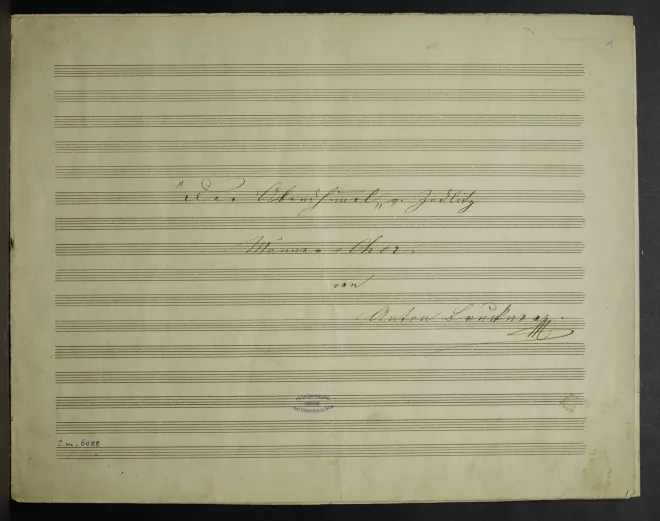 "Der Abendhimmel" v. Zedlitz
Männer-Chor.
von
Anton Bruckner.
S.m. 6028